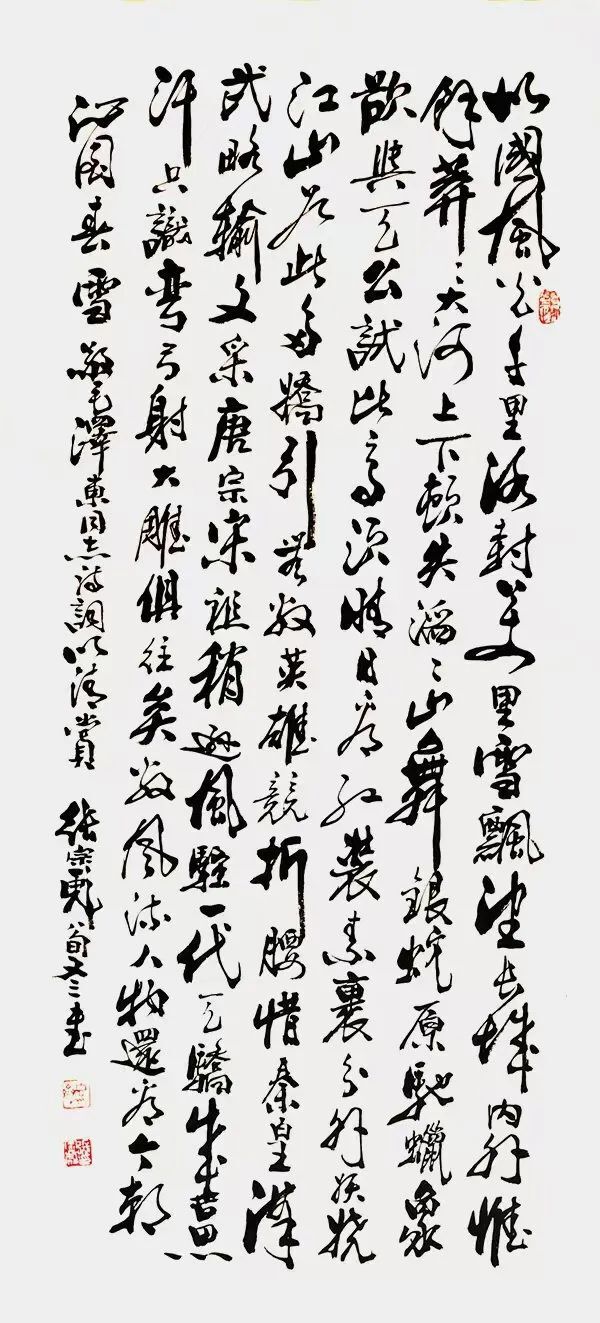 北國風光千里冰封萬里雪飄望長城内外惟
餘莽〻大河上下頓失滔〻山舞銀蛇原馳蠟象
欲與天公試比高須晴日看紅裝素裹分外妖嬈
江山如此多嬌引無數英雄競折腰惜秦皇漢
武略輸文采唐宗宋祖稍遜風騷一代天驕成吉思
汗只識彎弓射大雕俱往矣數風流人物還看今朝
沁園春雪 毛澤東同志詩詞以清賞 張宗彪 書